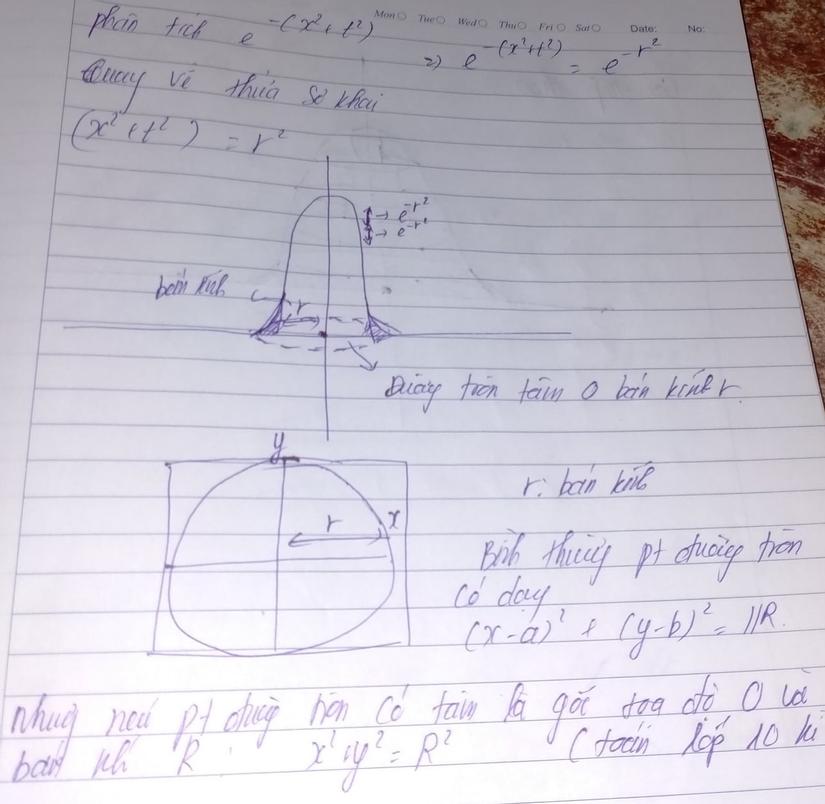 Mon Tue Wed Thu Fri Sat Date: No:
phân tích e^-(x²+t²) => e^-(x²+t²) = e^-r²
Quay về thủa sơ khai
(x²+t²) = r²
→ e^-r²
→ e^-r²
bán kính
r
Đường tròn tâm O bán kính r.
y
r: bán kính
r x
Bình thường pt đường tròn
có dạng
(x-a)² + (y-b)² = R.
nhưng nếu pt đường tròn có tâm là gốc tọa độ O và
bán kính R : x²+y² = R² (toán lớp 10 kì